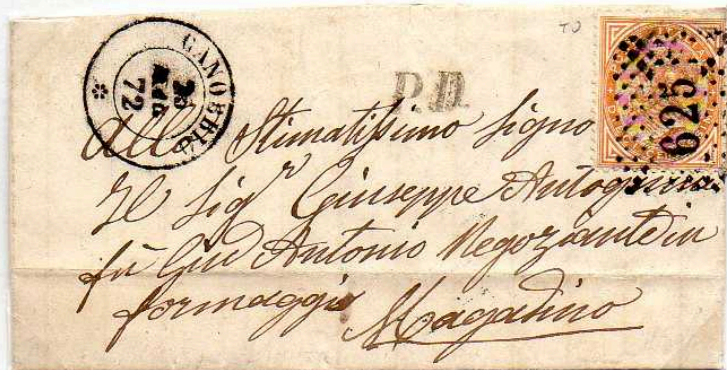 TO
CANOBBIO
72
P.D.
625
All Stimatissimo Signo
Il Sigr Giuseppe
fù Giuo Antonio Negoziante in
formaggio
Magadino